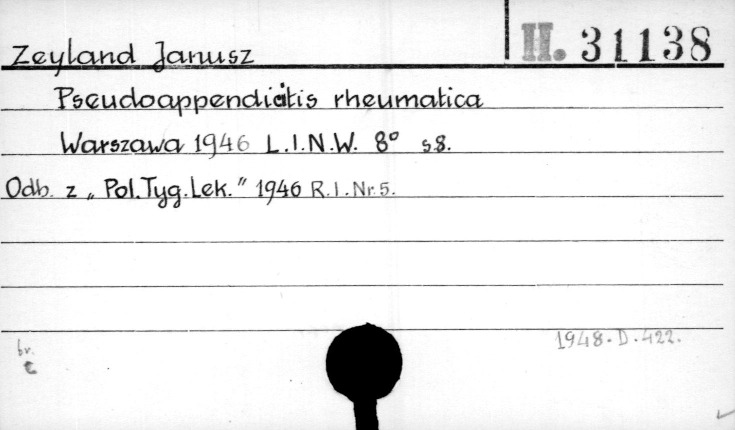 Zeyland Janusz II. 31138
Pseudoappendicitis rheumatica
Warszawa 1946 L.I.N.W. 8° s 8.
Odb. z „Pol.Tyg.Lek.” 1946 R.I.Nr.5.
br. 1948.D.422.